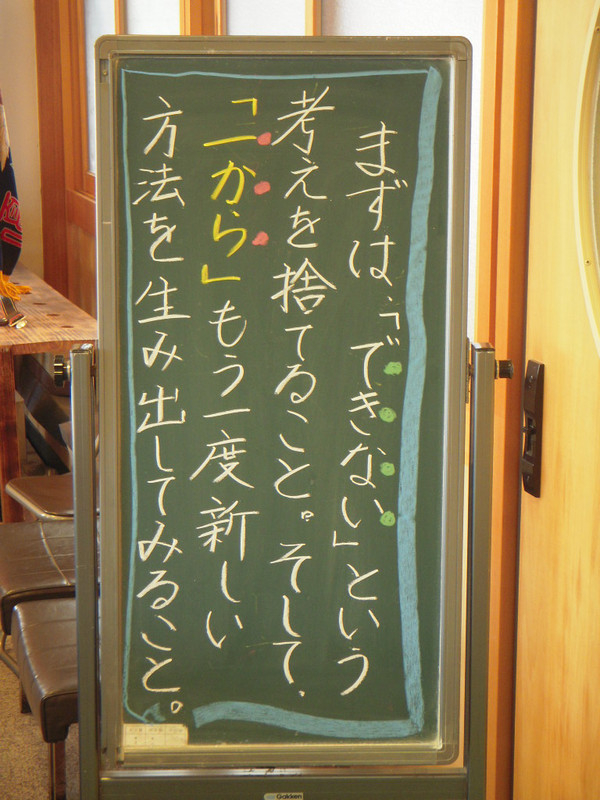 まずは、「できない」という
考えを捨てること。そして、
「一から」もう一度新しい
方法を生み出してみること。
Gakken